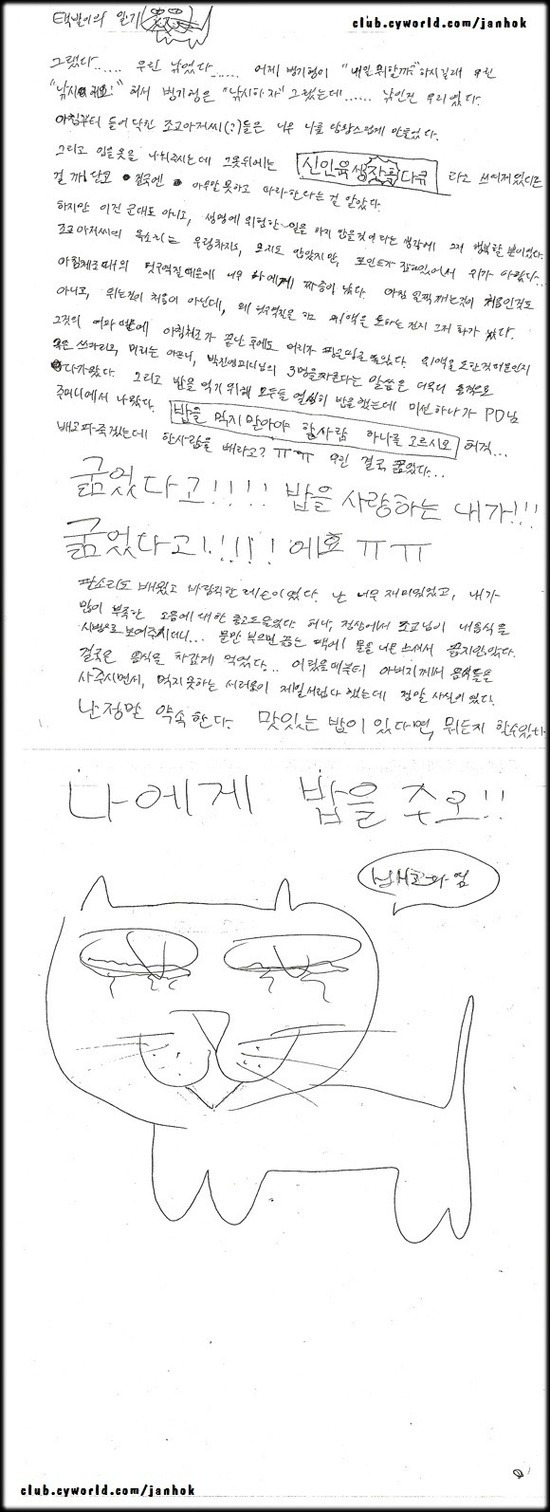 택발이의 일기
club.cyworld.com/janhok
그랬다...... 우린 낚였다...... 어제 병기형이 "내일 뭐할까" 하시길래 우린
"낚시 해요!" 해서 병기형은 "낚시하자" 그랬는데...... 낚인건 우리였다.
아침부터 들어닥친 조교아저씨(:)들은 너무 나를 당황스럽게 만들었다.
그리고 입을옷을 나눠주시는데 그옷뒤에는 신인육성잔혹다큐 라고 쓰여져있더군
걸까! 당코 결국엔 아무말 못하고 따라한다는 걸 알았다.
하지만 이건 군대도 아니고, 생명에 위험한 일을 하지 않을것이라는 생각에 그저 행복할 뿐이였다.
조교아저씨의 목소리는 우렁차지도, 모지도 않았지만, 포인트가 잡혀있어서 귀가 아팠다..
아침체조때의 헛구역질때문에 너무 나에게 짜증이 났다. 아침 일찍 깨는것이 처음인것도
아니고, 뛰는것이 처음이 아닌데, 왜 헛구역질은 하고 위액을 토하는 건지 그저 화가 났다.
그것의 여파 때문에 아침체조가 끝난 후에도 머리가 핑글핑글 돌았다. 위액을 토한것 때문인지
속은 쓰라리고, 머리는 아프니, 박진영피디님의 3명을 자른다는 말씀은 더욱더 충격으로
다가왔다. 그리고 밥을 먹기 위해 모두들 열심히 밥을 했는데 미션 하나가 PD님
주머니에서 나왔다. 밥을 먹지 말아야 할사람 하나를 고르시오 허걱...
배고파죽겠는데 한사람을 빼라고? ㅠㅠ 우린 결국 굶었다...
굶었다고!!!! 밥을 사랑하는 내가!!!
굶었다고!!!!! 에효 ㅠㅠ
판소리도 배웠고 바람직한 레슨이였다. 난 너무 재미있었고, 내가
많이 부족한 소름에 대한 충고도 들었다. 허나, 정상에서 조교님이 내 음식을
시범으로 보여주시더니... 물만 부으면 끓는 팩에 물을 너무 쓰셔서 끓지 않았다.
결국은 음식을 차갑게 먹었다.. 어렸을때부터 아버지께서 음식들을
사주시면서, 먹지못하는 서러움이 제일서럽다 했는데 정말 사실이였다.
난 정말 약속한다. 맛있는 밥이 있다면, 뭐든지 할수있다
나에게 밥을 주오!!
배고파염
club.cyworld.com/janhok